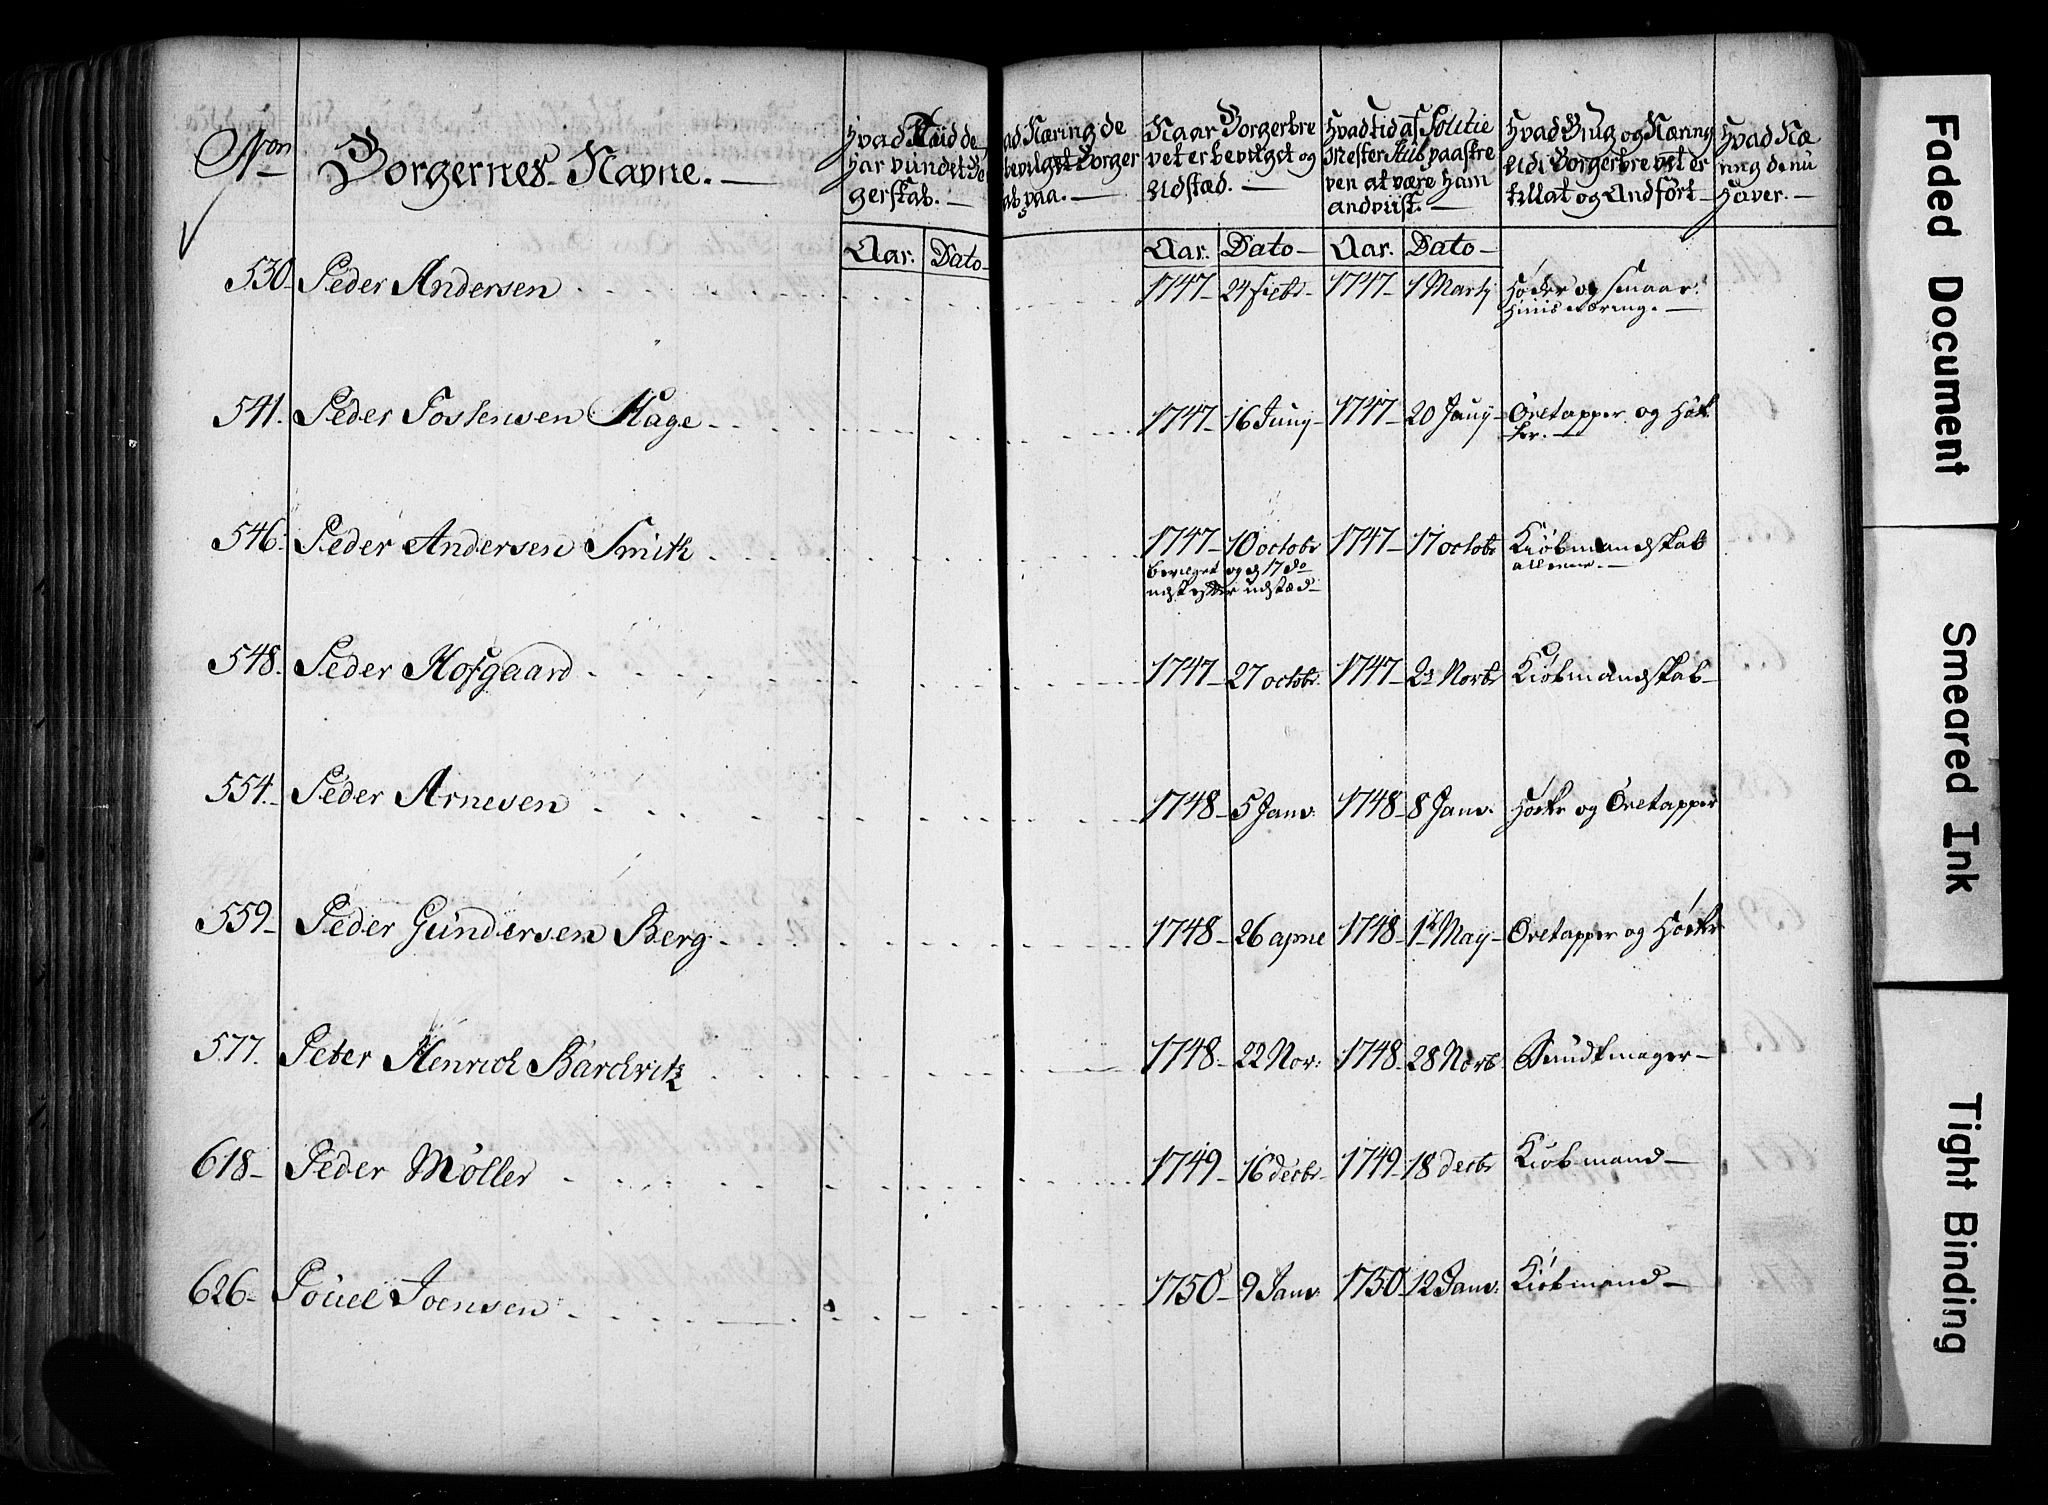 Nron
Borgernes Navne. —
Hvad Tiid de
har vundet B
gerskab. —
ad Næring de
bevilget Borger
ab paa. —
Naar Borgerbre
vet er bevilget og
Udstæd. —
Hvad tid af Politie
Mester Stub paaskre
ven at være ham
andviist. —
Hvad Brug og Næring
Udi Borgerbrevet er
tillat og Andført —
Hvad Næ
ring de nu
Haver. —
Aar. Dato — Aar. Dato — Aar. Dato —
530. Peder Andersen 1747 — 24 Febr. 1747 — 1 Martj Høcker og Smaar
Huus Næring. —
541. Peder Tostensen Hage 1747 — 16 Junij — 1747 — 20 Junij — Øretapper og Høk
ker. —
546. Peder Andersen Smith 1747 — 10 octobr 1747 — 17 octobr Kiøbmandskab
allene. —
bevilget og d 17 do
udstæd —
548. Peder Hofgaard 1747 — 27 octobr. 1747 — 23 Novbr Kiøbmandskab —
554. Peder Arnesen 1748 — 5 Janv. 1748 — 8 Janv. Høckr og Øretapper
559 — Peder Gundersen Berg 1748 — 26 aprie 1748 — 1t May — Øretapper og Høckr
577. Peter Henrich Barchvitz 1748 — 22 Nov: 1748 — 28 Novb. Bundtmager —
618 — Peder Møller 1749 — 16 decbr — 1749 — 18 decbr Kiøbmand —
626 — Pouel Joensen 1750 — 9 Janv: 1750 — 12 Janv: Kiøbmand —
Faded Document
Smeared Ink
Tight Binding